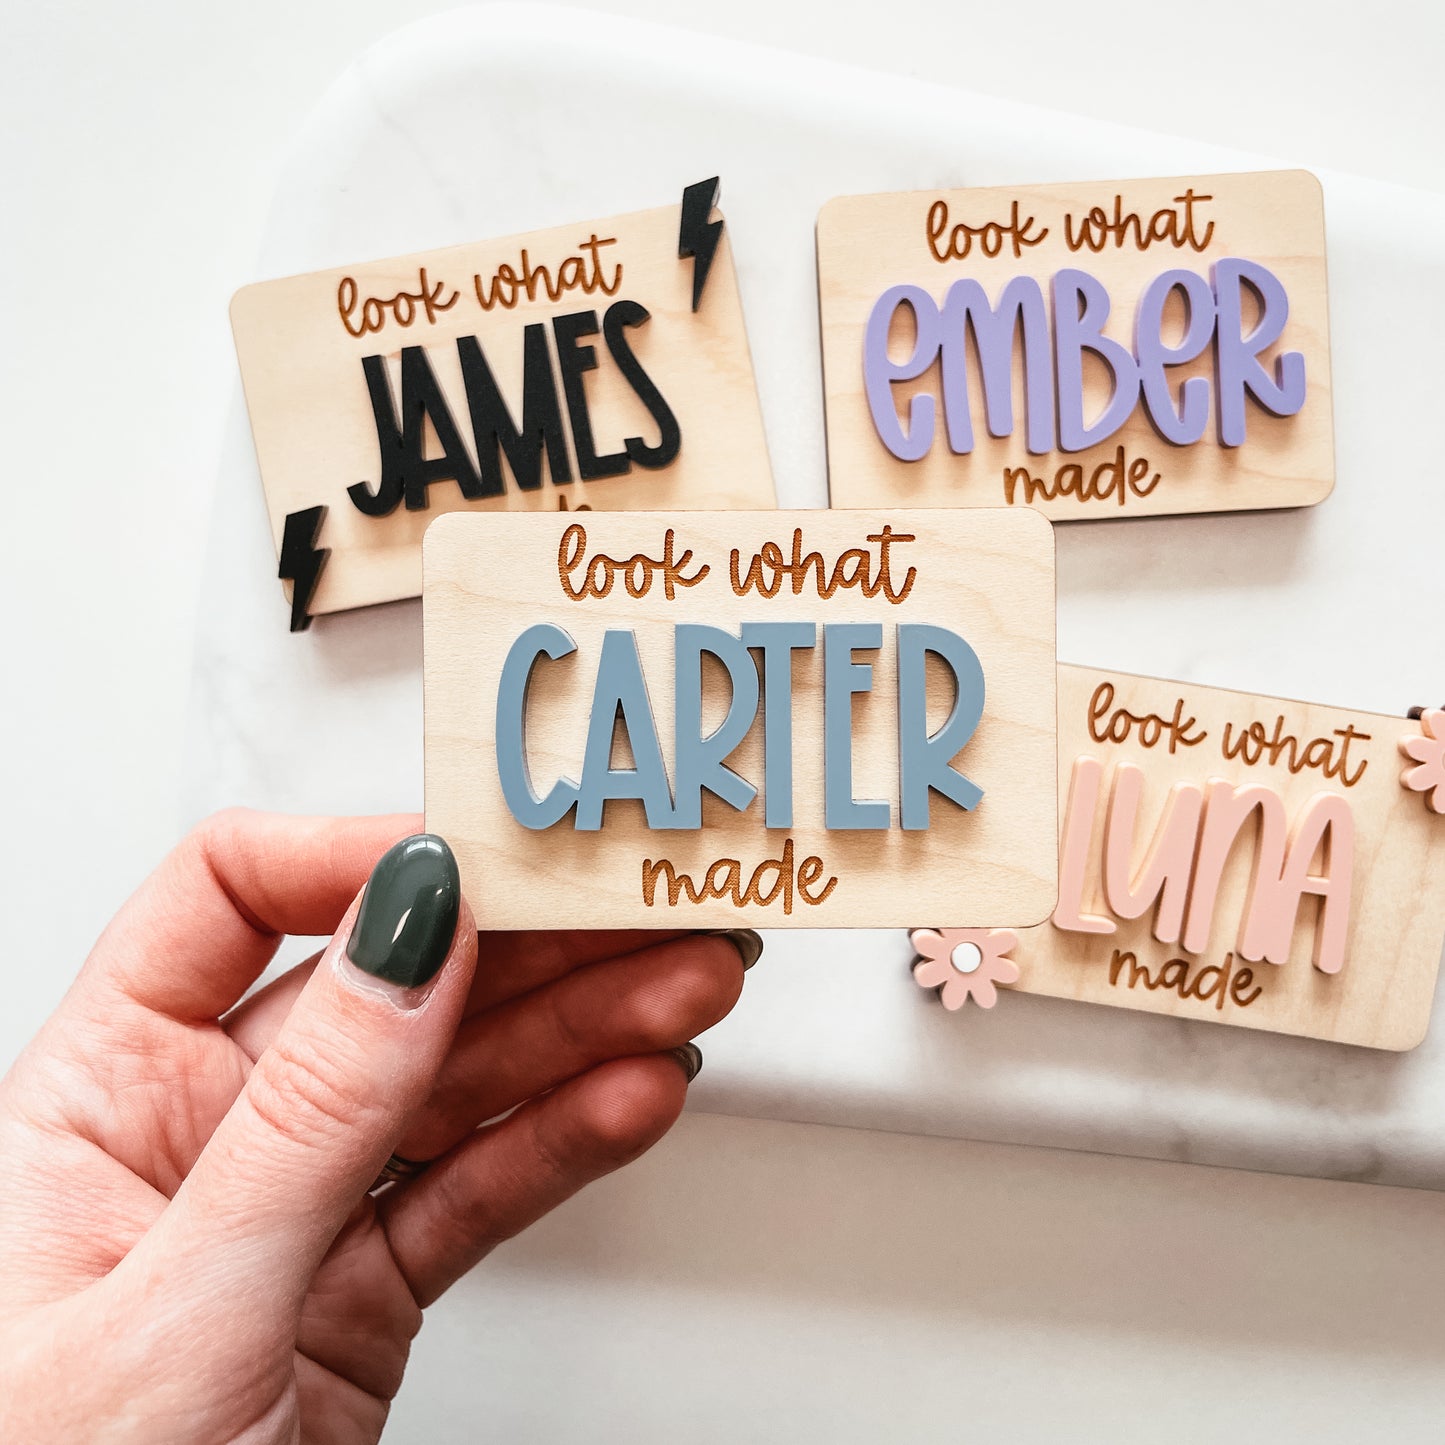 look what
JAMES
look what
EMBER
made
look what
CARTER
made
look what
LUNA
made